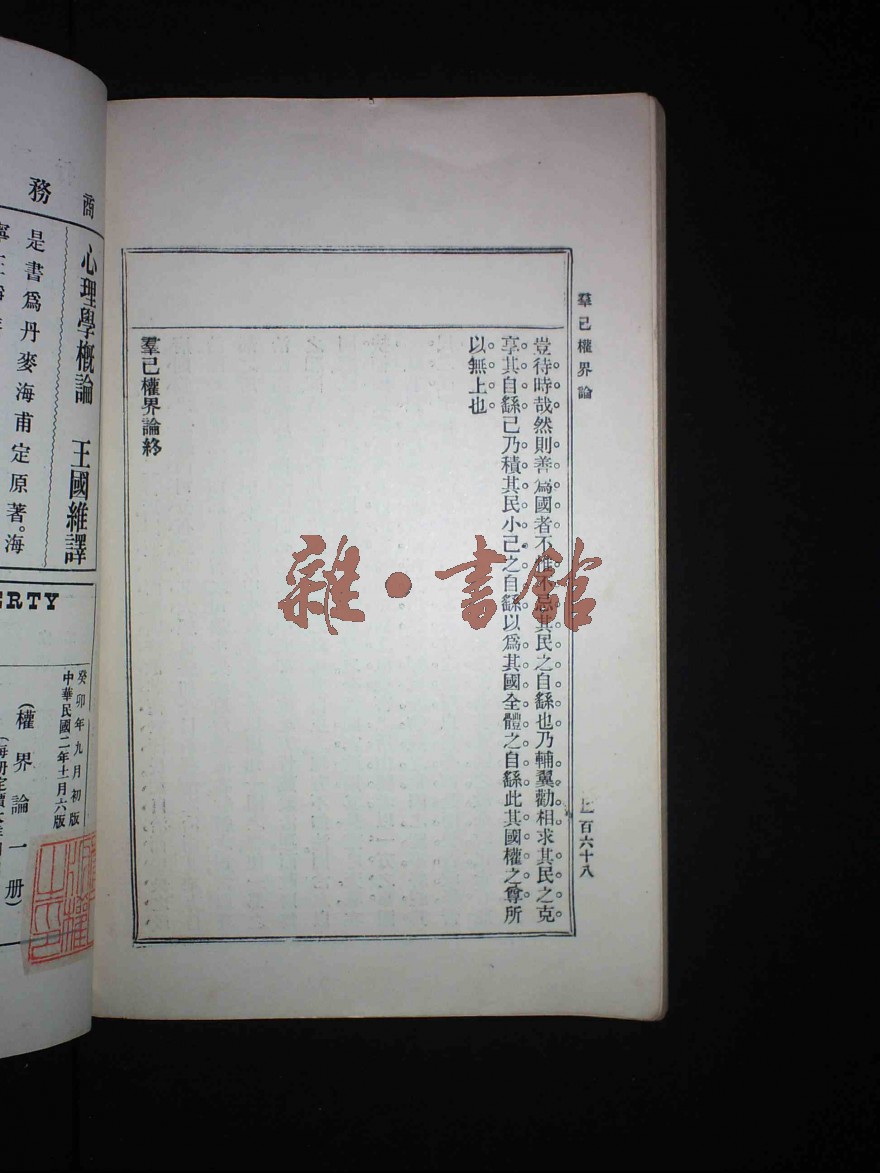 羣己權界論
豈待時哉然則善爲國者不惟不忌其民之自繇也乃輔翼勸相求其民之克
享其自繇已乃積其民小己之自繇以爲其國全體之自繇此其國權之尊所
以無上也
羣己權界論終
一百六十八
雜·書館
商務
心理學概論 王國維譯
是書爲丹麥海甫定原著。海
ERTY
癸卯年九月初版
中華民國二年十一月六版
(權界論一册)